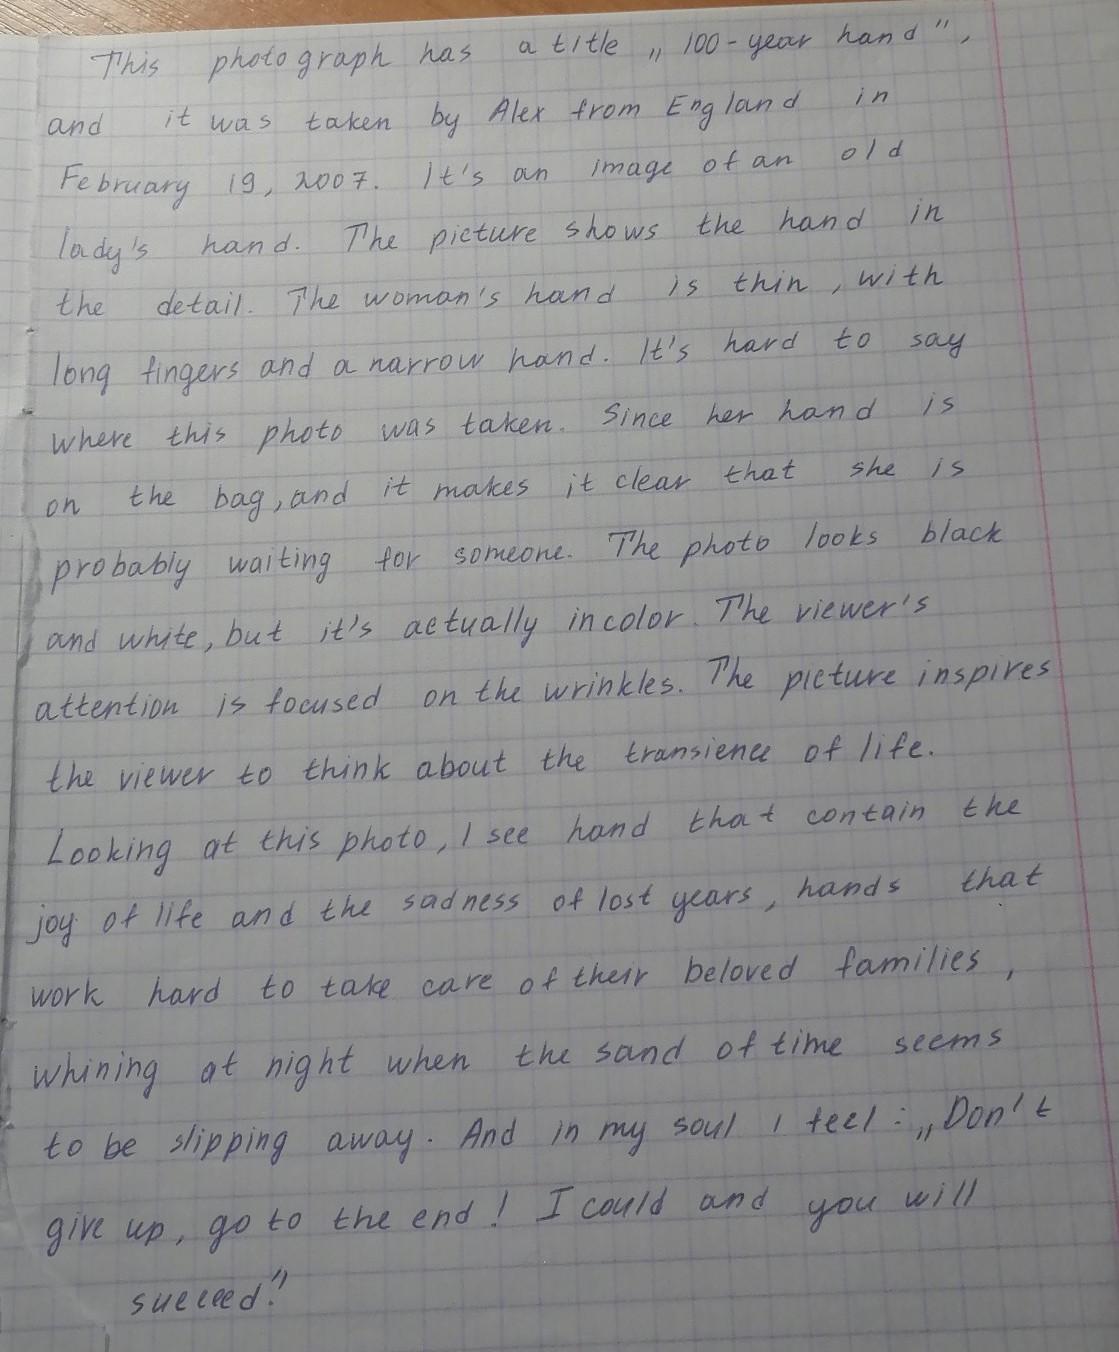 This photograph has a title „100-year hand",
and it was taken by Alex from England in
February 19, 2007. It's an image of an old
lady's hand. The picture shows the hand in
the detail. The woman's hand is thin, with
long fingers and a narrow hand. It's hard to say
where this photo was taken. Since her hand is
on the bag, and it makes it clear that she is
probably waiting for someone. The photo looks black
and white, but it's actually in color. The viewer's
attention is focused on the wrinkles. The picture inspires
the viewer to think about the transience of life.
Looking at this photo, I see hand that contain the
joy of life and the sadness of lost years, hands that
work hard to take care of their beloved families,
whining at night when the sand of time seems
to be slipping away. And in my soul I feel: „Don't
give up, go to the end! I could and you will
succeed."